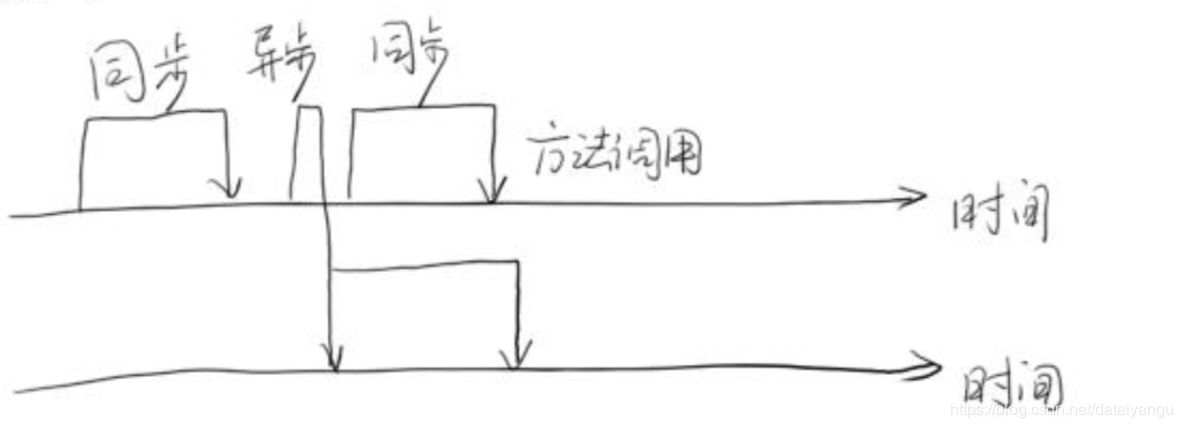 同步
异步
同步
方法调用
时间
时间
https://blog.csdn.net/dataiyangu